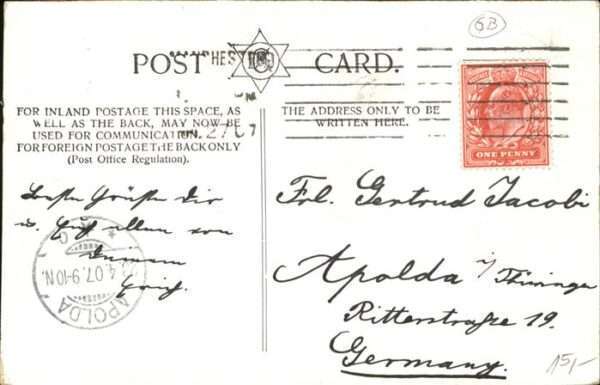 GB
POST CARD.
FOR INLAND POSTAGE THIS SPACE, AS
WELL AS THE BACK, MAY NOW BE
USED FOR COMMUNICATION.
FOR FOREIGN POSTAGE THE BACK ONLY
(Post Office Regulation).
THE ADDRESS ONLY TO BE
WRITTEN HERE.
ONE PENNY
Besten Grüßen Dir
allen von
Deinem
APOLDA
4.07.9-10N.
Frl. Gertrud Jacobi
Apolda i/Thüringen
Ritterstraße 19.
Germany.
15,-